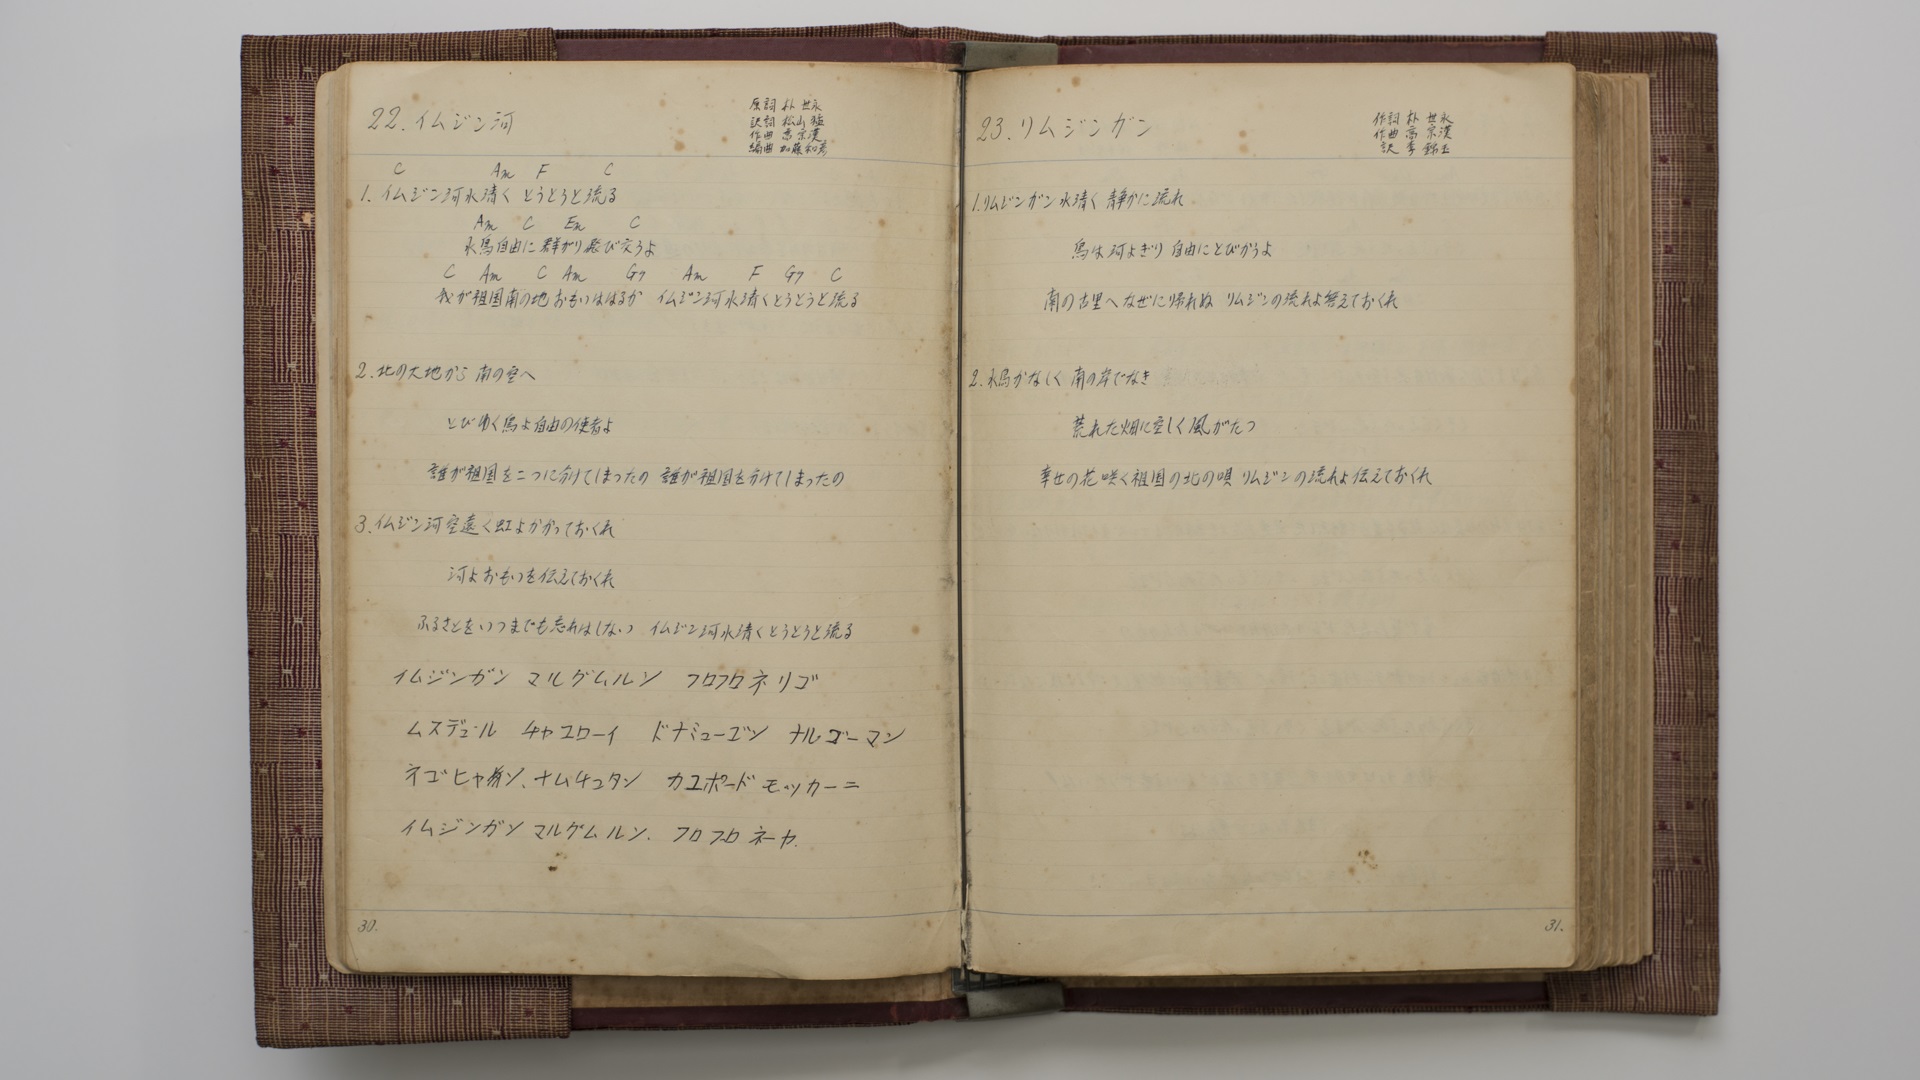 22.イムジン河
原詞 朴 世永
訳詞 松山 猛
作曲 高 宗漢
編曲 加藤和彦
C Am F C
1. イムジン河水清く とうとうと流る
Am C Em C
水鳥自由に群がり飛び交うよ
C Am C Am G7 Am F G7 C
我が祖国南の地おもいははるか イムジン河水清くとうとうと流る
2.北の大地から 南の空へ
とびゆく鳥よ自由の使者よ
誰が祖国を二つに分けてしまったの 誰が祖国を分けてしまったの
3.イムジン河空遠く虹よかかっておくれ
河よおもいを伝えておくれ
ふるさとをいつまでも忘れはしない イムジン河水清くとうとうと流る
イムジンガン マルグムルン フロフロネリゴ
ムスデュール チャユローイ ドナミューゴン ナルゴーマン
ネゴヒャ ン、ナムチュタン カユポードモッカーニ
イムジンガン マルグムルン. フロフロネーヤ.
30.
23.リムジンガン
作詞 朴 世永
作曲 高 宗漢
訳 李 錦玉
1.リムジンガン水清く 静かに流れ
鳥は河よぎり 自由にとびかうよ
南の古里へなぜに帰れぬ リムジンの流れよ答えておくれ
2.水鳥かなしく 南の岸でなき
荒れた畑に空しく風がたつ
幸せの花咲く祖国の北の唄 リムジンの流れよ伝えておくれ
31.